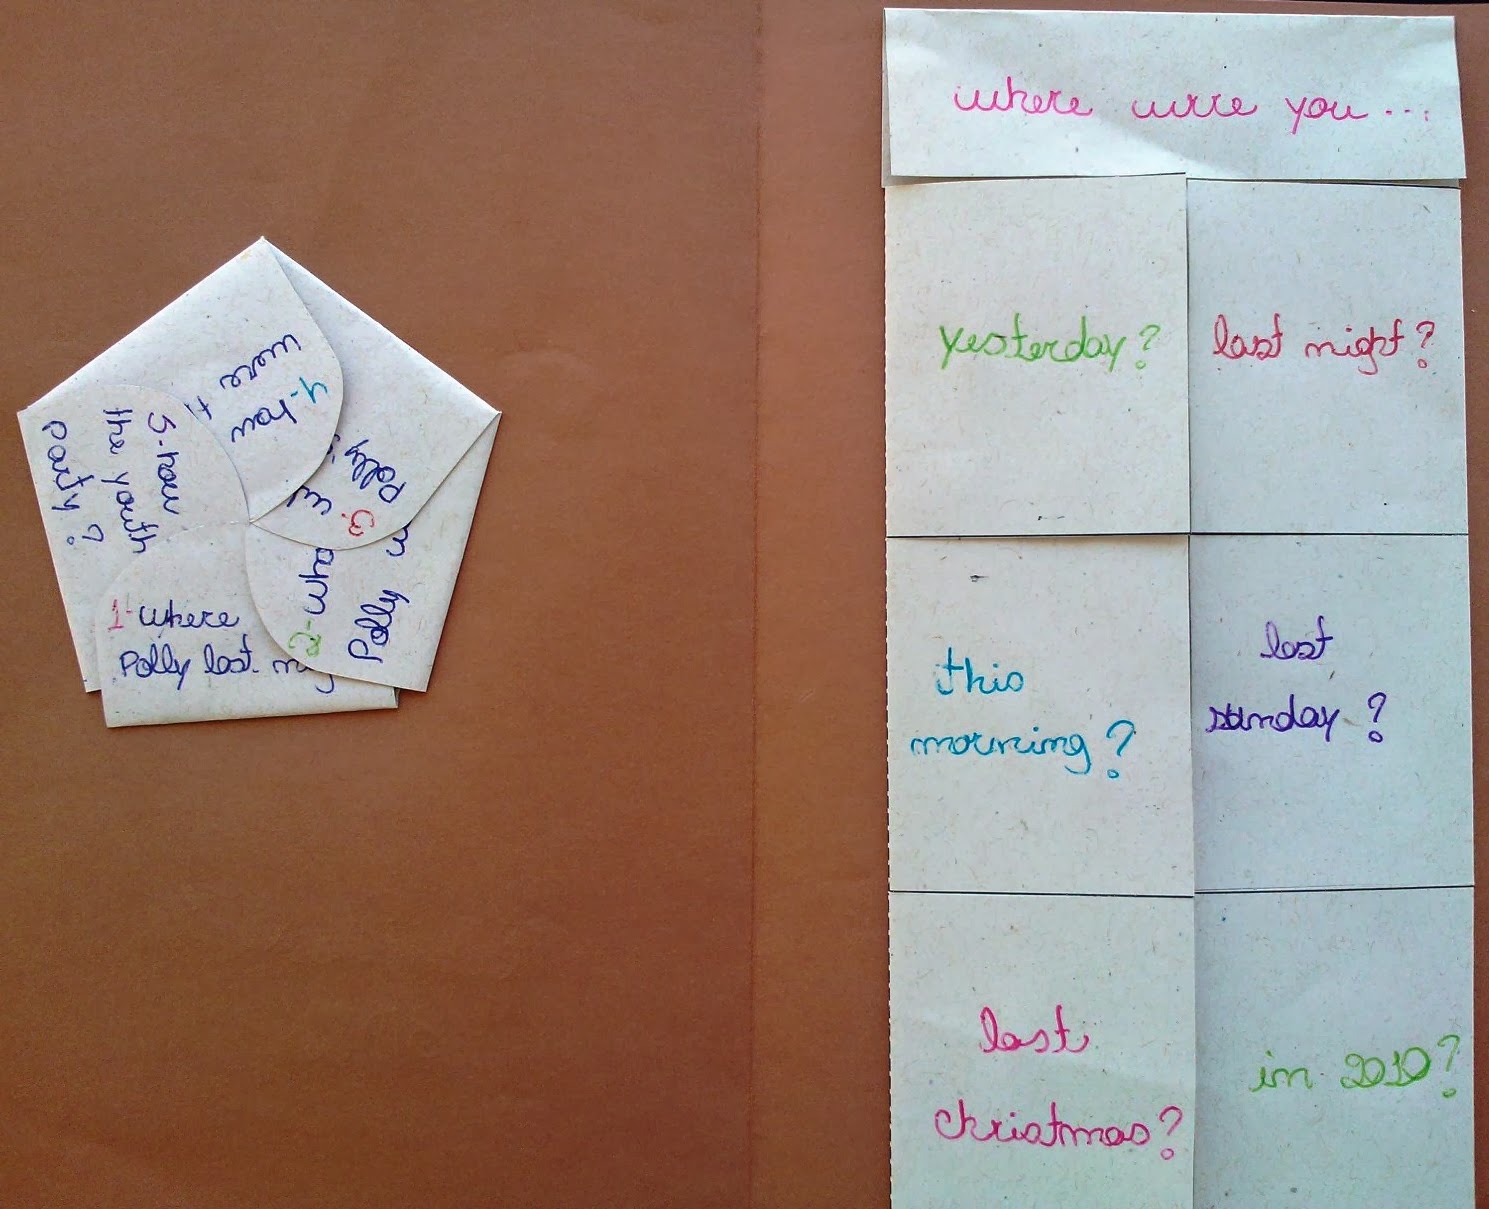 where were you ...
yesterday?
last night?
this
morning?
last
sunday?
last
christmas?
in 2010?
1- where
Polly last
2- why
Polly
3.
Polly
4- how
were
5- how
the youth
party?